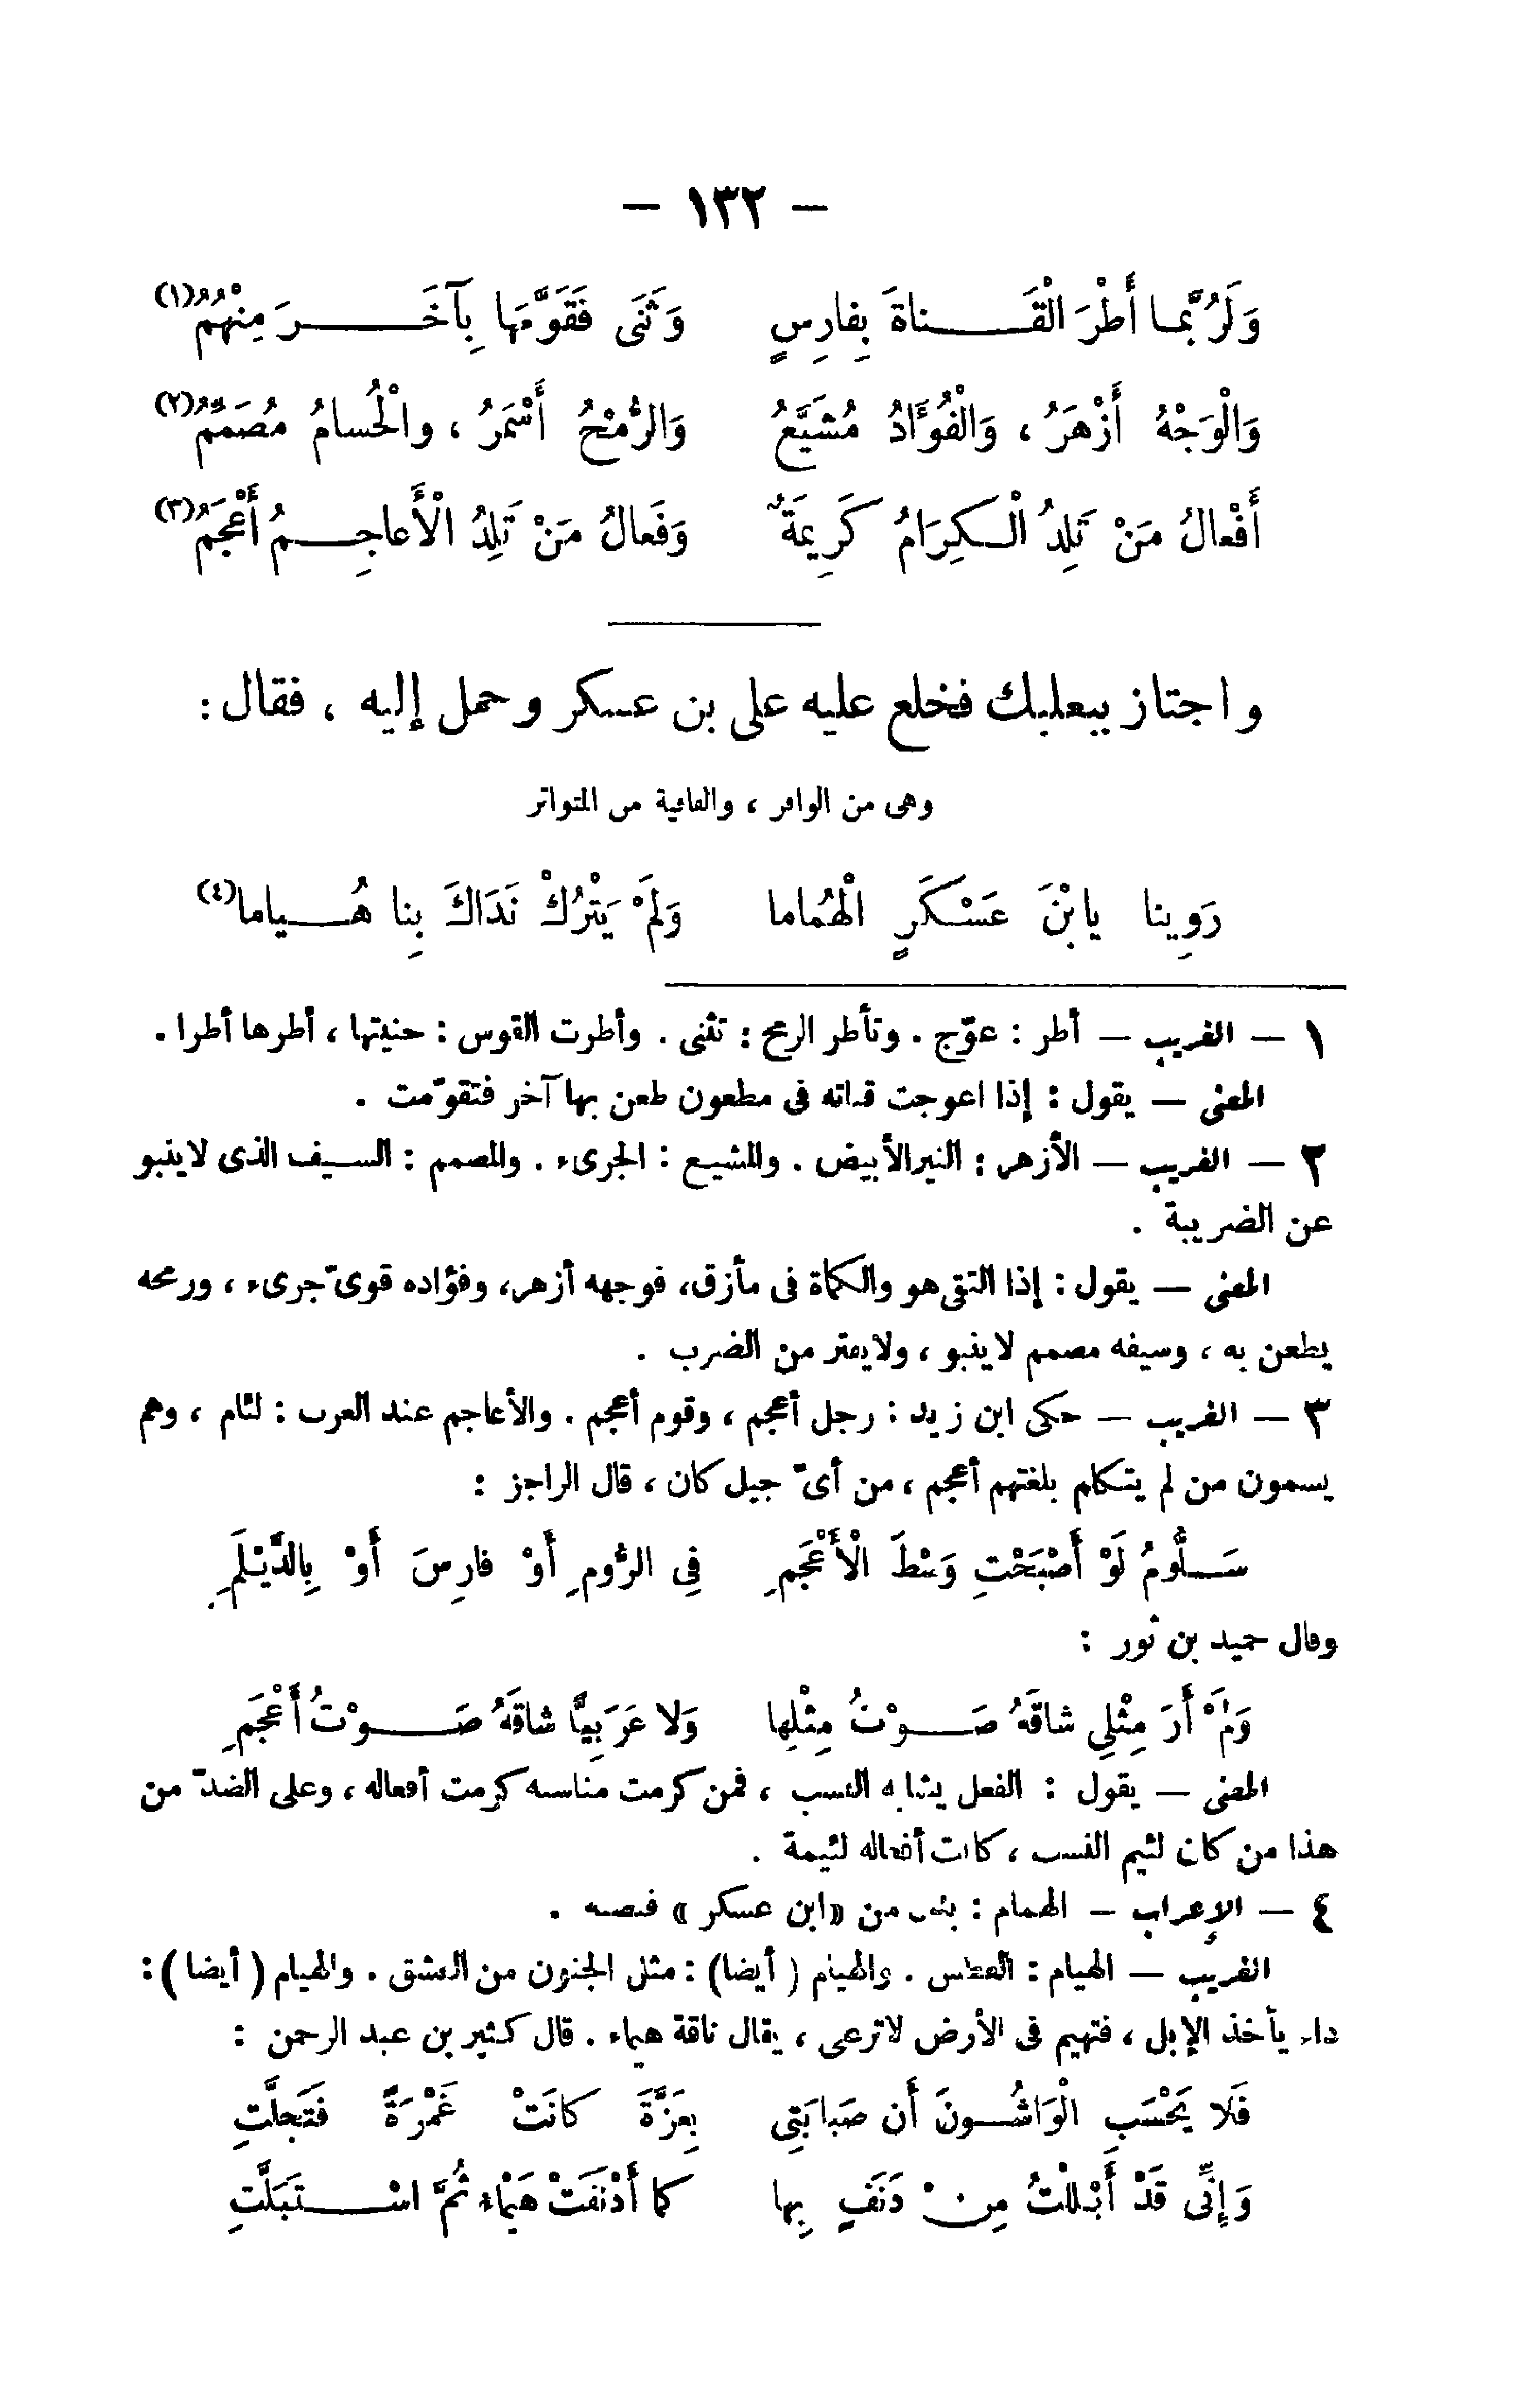 — ١٣٢ —
وَلَرُبَّما أَطْرَ الْقَـناةَ بِفارِسٍ وَثَنَى فَقَوَّمَها بِآخَـرَ مِنْهُمُ(١)
وَالْوَجْهُ أَزْهَرُ ، وَالْفُؤَادُ مُشَيَّعُ وَالرُّمْحُ أَسْمَرُ ، والْحُسامُ مُصَمِّمُ(٢)
أَفْعالُ مَنْ تَلِدُ الْكِرَامُ كَرِيمَةٌ وَفَعالُ مَنْ تَلِدُ الْأَعاجِـمُ أَعْجَمُ(٣)
واجتاز ببعلبك فخلع عليه على بن عسكر وحمل إليه ، فقال :
وهى من الوافر ، والقافية من المتواتر
رَوِينا يابْنَ عَسْكَرٍ الْهُماما وَلَمْ يَتْرُكْ نَدَاكَ بِنا هُـياما(٤)
١ — الغريب — أطر : عوّج . وتأطر الرمح : تثنى . وأطرت القوس : حنيتها ، أطرها أطرا .
المعنى — يقول : إذا اعوجت قناته فى مطعون طعن بها آخر فتقوّمت .
٢ — الغريب — الأزهر : النير الأبيض . والمشيع : الجرىء . والمصمم : السـيف الذى لاينبو
عن الضريبة .
المعنى — يقول : إذا التقى هو والكماة فى مأزق، فوجهه أزهر، وفؤاده قوىّ جرىء ، ورمحه
يطعن به ، وسيفه مصمم لاينبو ، ولايفتر من الضرب .
٣ — الغريب — حكى ابن زيد : رجل أعجم ، وقوم أعجم . والأعاجم عند العرب : لئام ، وهم
يسمون من لم يتكلم بلغتهم أعجم ، من أىّ جيل كان ، قال الراجز :
سَـلُّومُ لَوْ أَصْبَحْتِ وَسْطَ الْأَعْجَمِ فِى الرُّومِ أَوْ فارِسَ أَوْ بِالدَّيْلَمِ
وقال حميد بن ثور :
وَلَمْ أَرَ مِثْلِى شاقَهُ صَـوْتُ مِثْلِها وَلا عَرَبِيًّا شاقَهُ صَـوْتُ أَعْجَمِ
المعنى — يقول : الفعل يشابه النسب ، فمن كرمت مناسبه كرمت أفعاله ، وعلى الضدّ من
هذا من كان لئيم النسب ، كانت أفعاله لئيمة .
٤ — الإعراب — الهمام : بدل من «ابن عسكر» فنصبه .
الغريب — الهيام : العطش . والهيام (أيضا) : مثل الجنون من العشق . والهيام (أيضا) :
داء يأخذ الإبل ، فتهيم فى الأرض لاترعى ، يقال ناقة هيماء . قال كثير بن عبد الرحمن :
فَلا يَحْسَبِ الْوَاشُـونَ أَن صَبابَتِى بِعَزَّةَ كانَتْ غَمْرَةً فَتَجَلَّتِ
وَإِنِّى قَدْ أَبْلَلْتُ مِنْ دَنَفٍ بِها كما أَدْنَفَتْ هَيْماء ثُمَّ اسْـتَبَلَّتِ